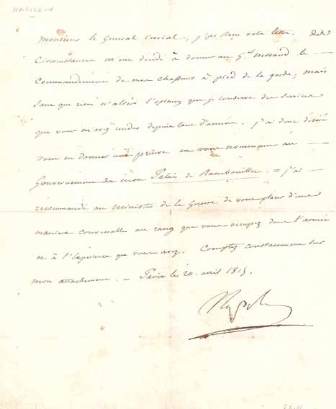 Monsieur le Général Curial, j'ai reçu votre lettre. Des
circonstances m'ont décidé à donner au Gal Morand le
Commandement de mes chasseurs à pied de la garde, mais
sans que rien n'altère l'estime que je conserve des services
que vous m'avez rendus depuis tant d'années. j'ai donc désiré
vous en donner une preuve en vous nommant au
Gouvernement de mon Palais de Rambouillet. j'ai
recommandé au Ministre de la Guerre de vous placer d'une
manière convenable au rang que vous occupez dans l'armée
et à l'expérience que vous avez. Comptez constamment sur
mon attachement. Paris le 20 avril 1815.
Napole